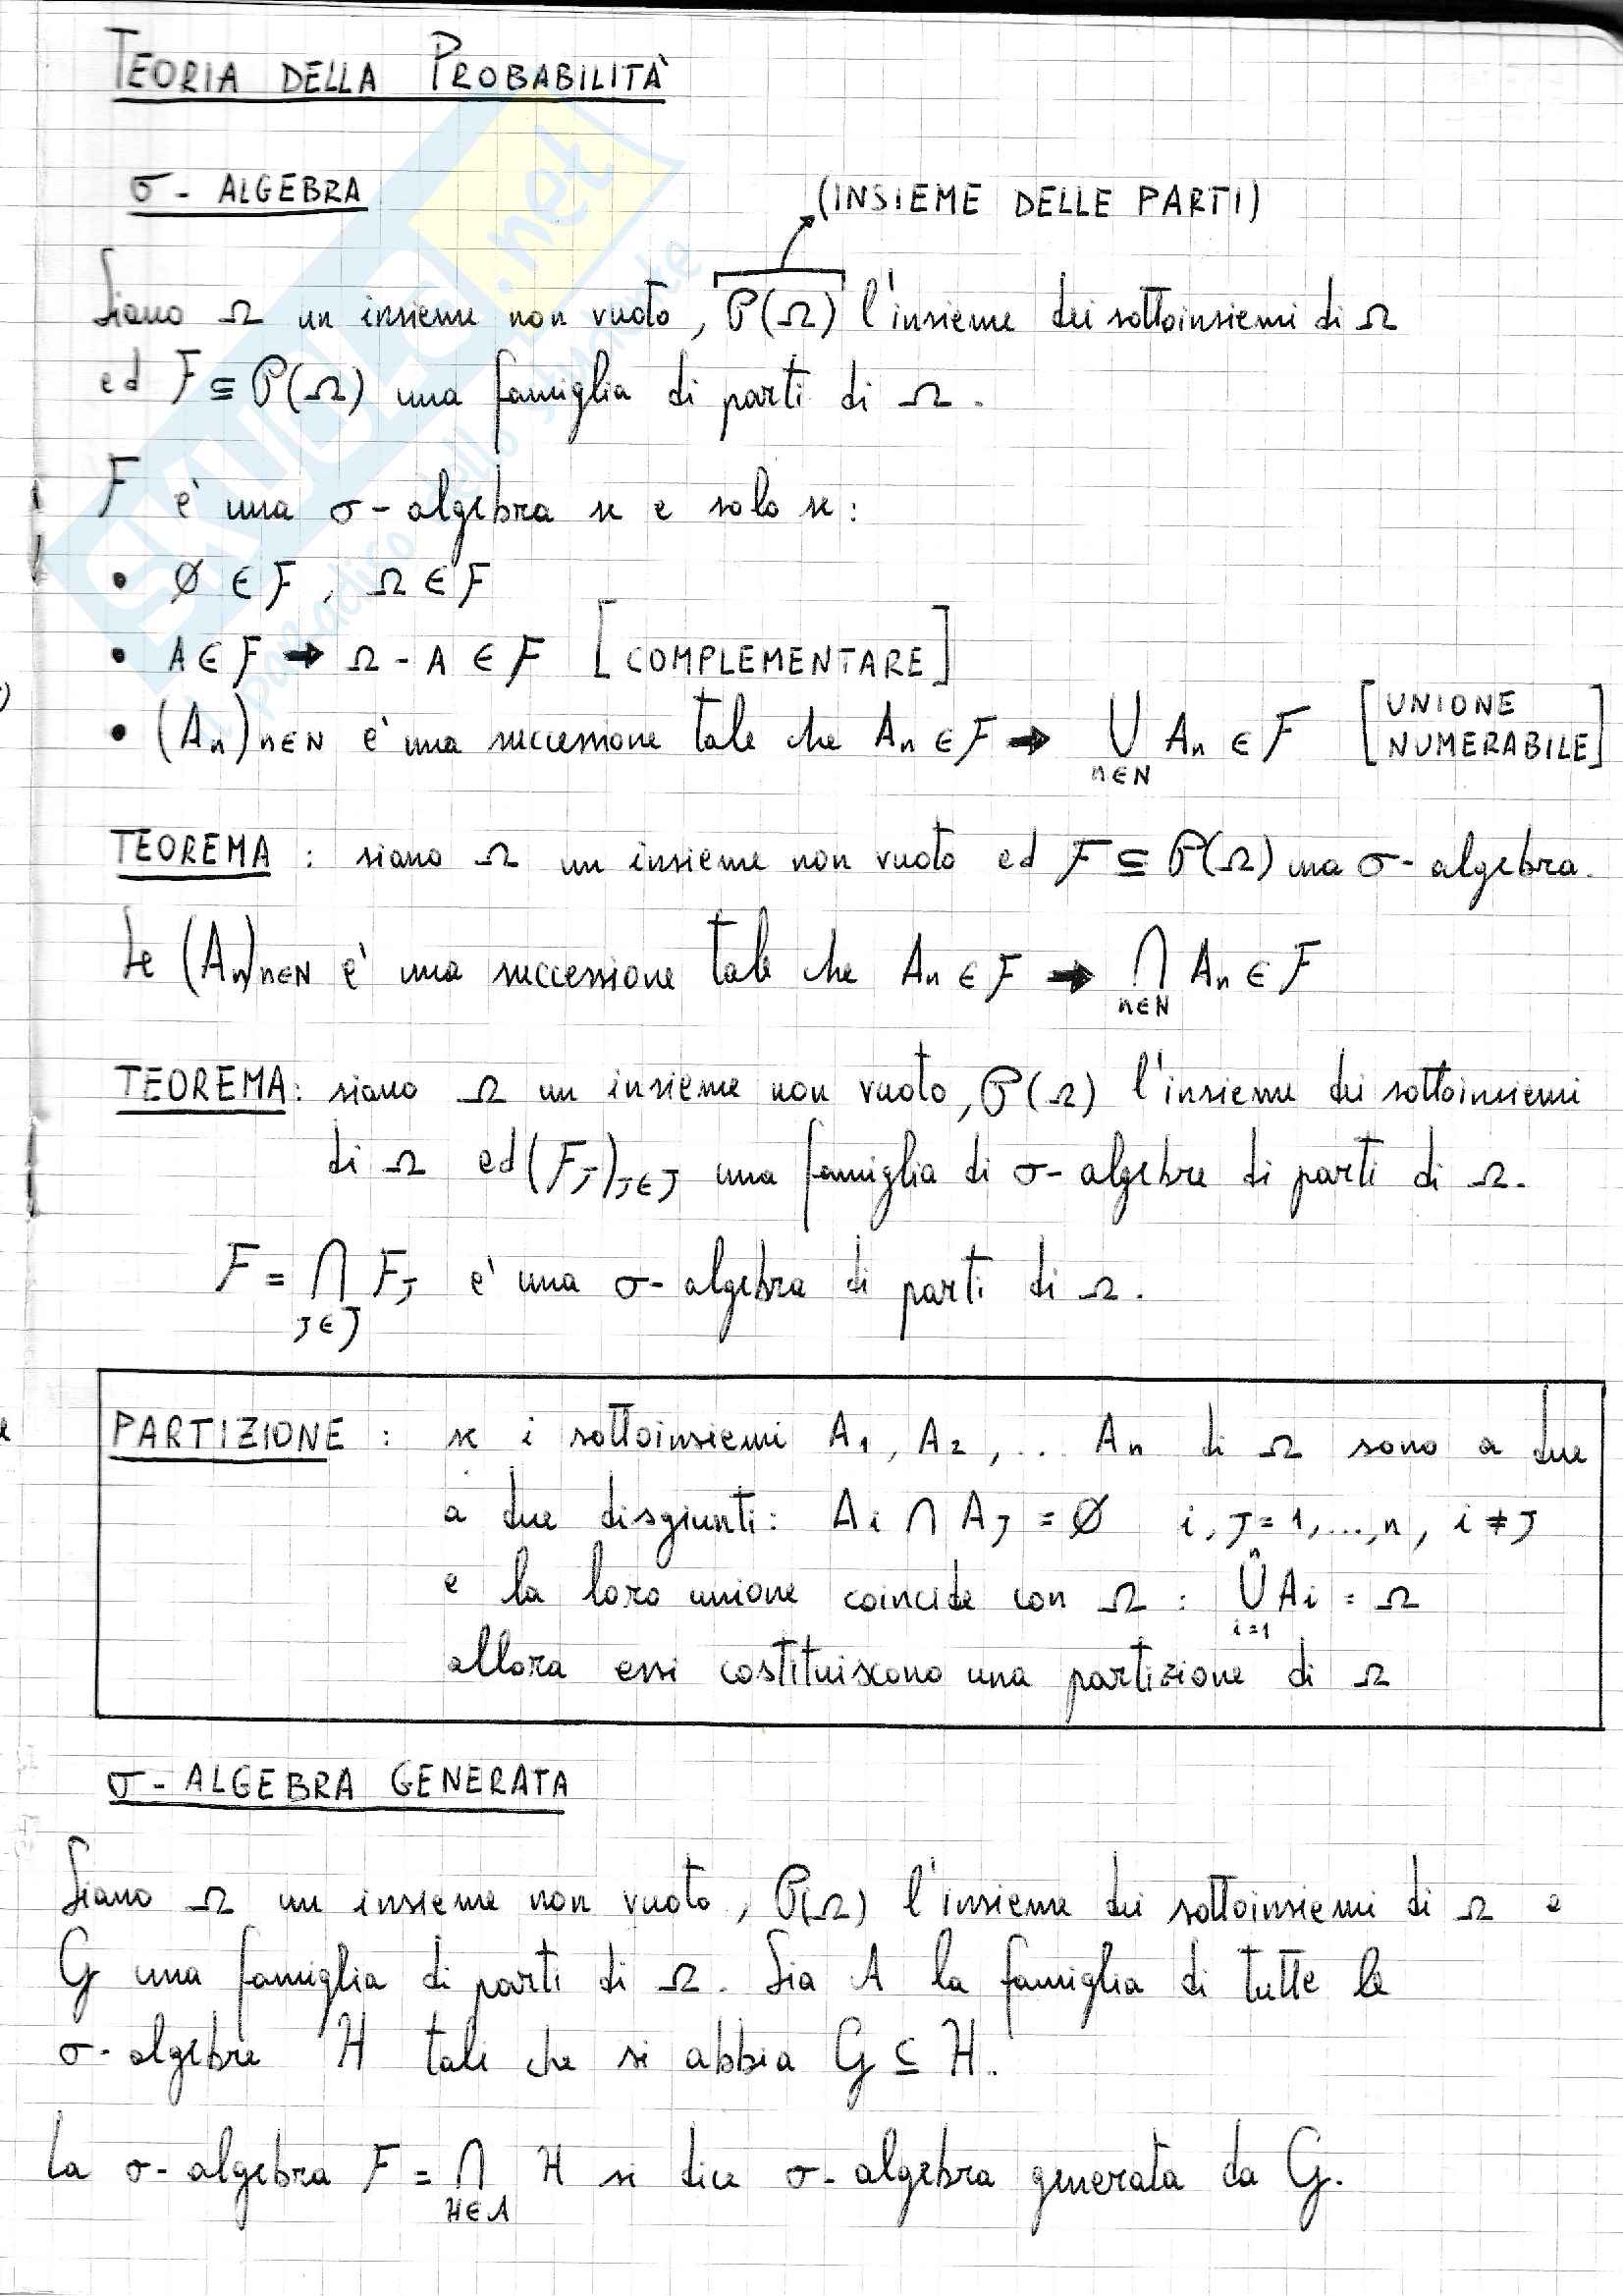 TEORIA DELLA PROBABILITÀ
σ - ALGEBRA
(INSIEME DELLE PARTI)
Siano Ω un insieme non vuoto, P(Ω) l'insieme dei sottoinsiemi di Ω
ed F ⊆ P(Ω) una famiglia di parti di Ω.
F è una σ-algebra se e solo se:
• Ø ∈ F , Ω ∈ F
• A ∈ F → Ω - A ∈ F [COMPLEMENTARE]
• (An)n∈N è una successione tale che An ∈ F → ⋃ n∈N An ∈ F [UNIONE NUMERABILE]
TEOREMA : siano Ω un insieme non vuoto ed F ⊆ P(Ω) una σ-algebra.
Se (An)n∈N è una successione tale che An ∈ F → ⋂ n∈N An ∈ F
TEOREMA: siano Ω un insieme non vuoto, P(Ω) l'insieme dei sottoinsiemi
di Ω ed (FJ)J∈J una famiglia di σ-algebre di parti di Ω.
F = ⋂ J∈J FJ è una σ-algebra di parti di Ω.
PARTIZIONE : se i sottoinsiemi A1, A2, ... An di Ω sono a due
a due disgiunti: Ai ∩ AJ = Ø i, J = 1, ..., n, i ≠ J
e la loro unione coincide con Ω : n ⋃ i=1 Ai = Ω
allora essi costituiscono una partizione di Ω
σ - ALGEBRA GENERATA
Siano Ω un insieme non vuoto, P(Ω) l'insieme dei sottoinsiemi di Ω e
G una famiglia di parti di Ω. Sia A la famiglia di tutte le
σ-algebre H tali che si abbia G ⊆ H.
La σ-algebra F = ⋂ H∈A H si dice σ-algebra generata da G.